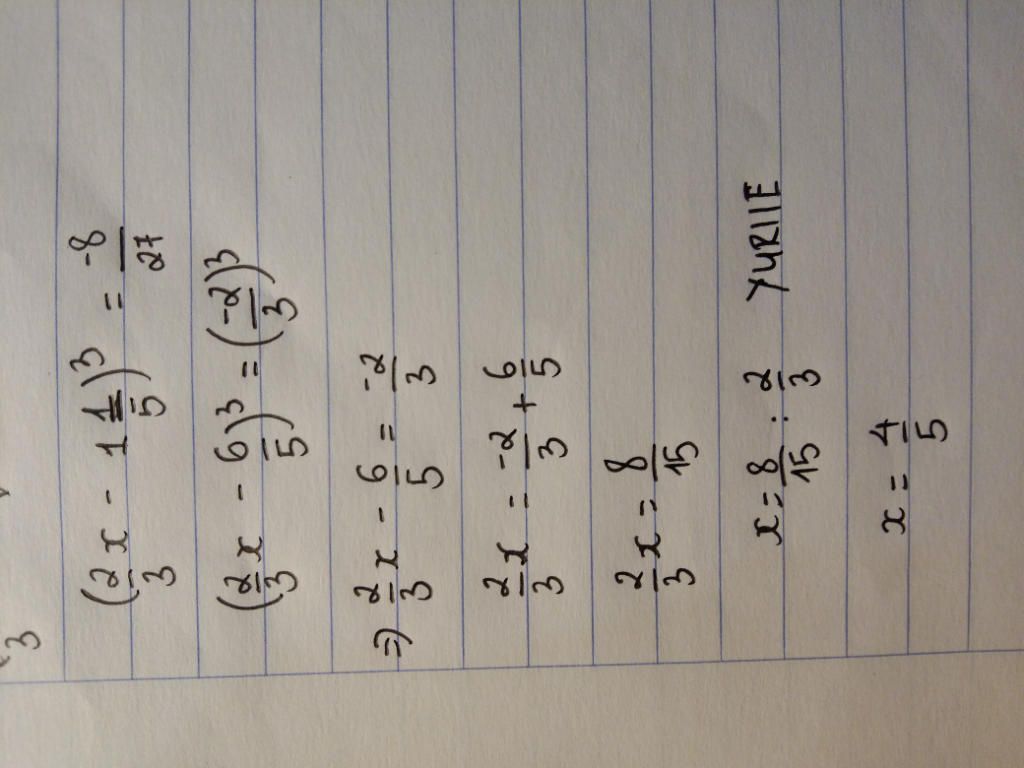 3
(2/3 x - 1 1/5)³ = -8/27
(2/3 x - 6/5)³ = (-2/3)³
=> 2/3 x - 6/5 = -2/3
2/3 x = -2/3 + 6/5
2/3 x = 8/15
x = 8/15 : 2/3 YURIIE
x = 4/5